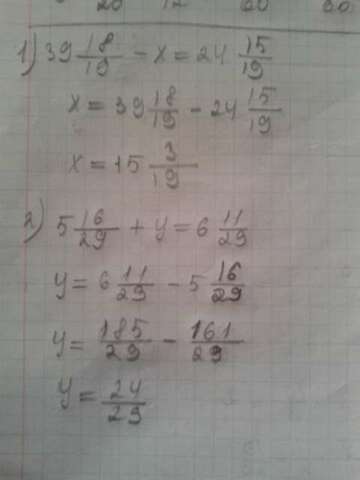 20 12 60 80
1) 39 18/19 - x = 24 15/19
x = 39 18/19 - 24 15/19
x = 15 3/19
2) 5 16/29 + y = 6 11/29
y = 6 11/29 - 5 16/29
y = 185/29 - 161/29
y = 24/29